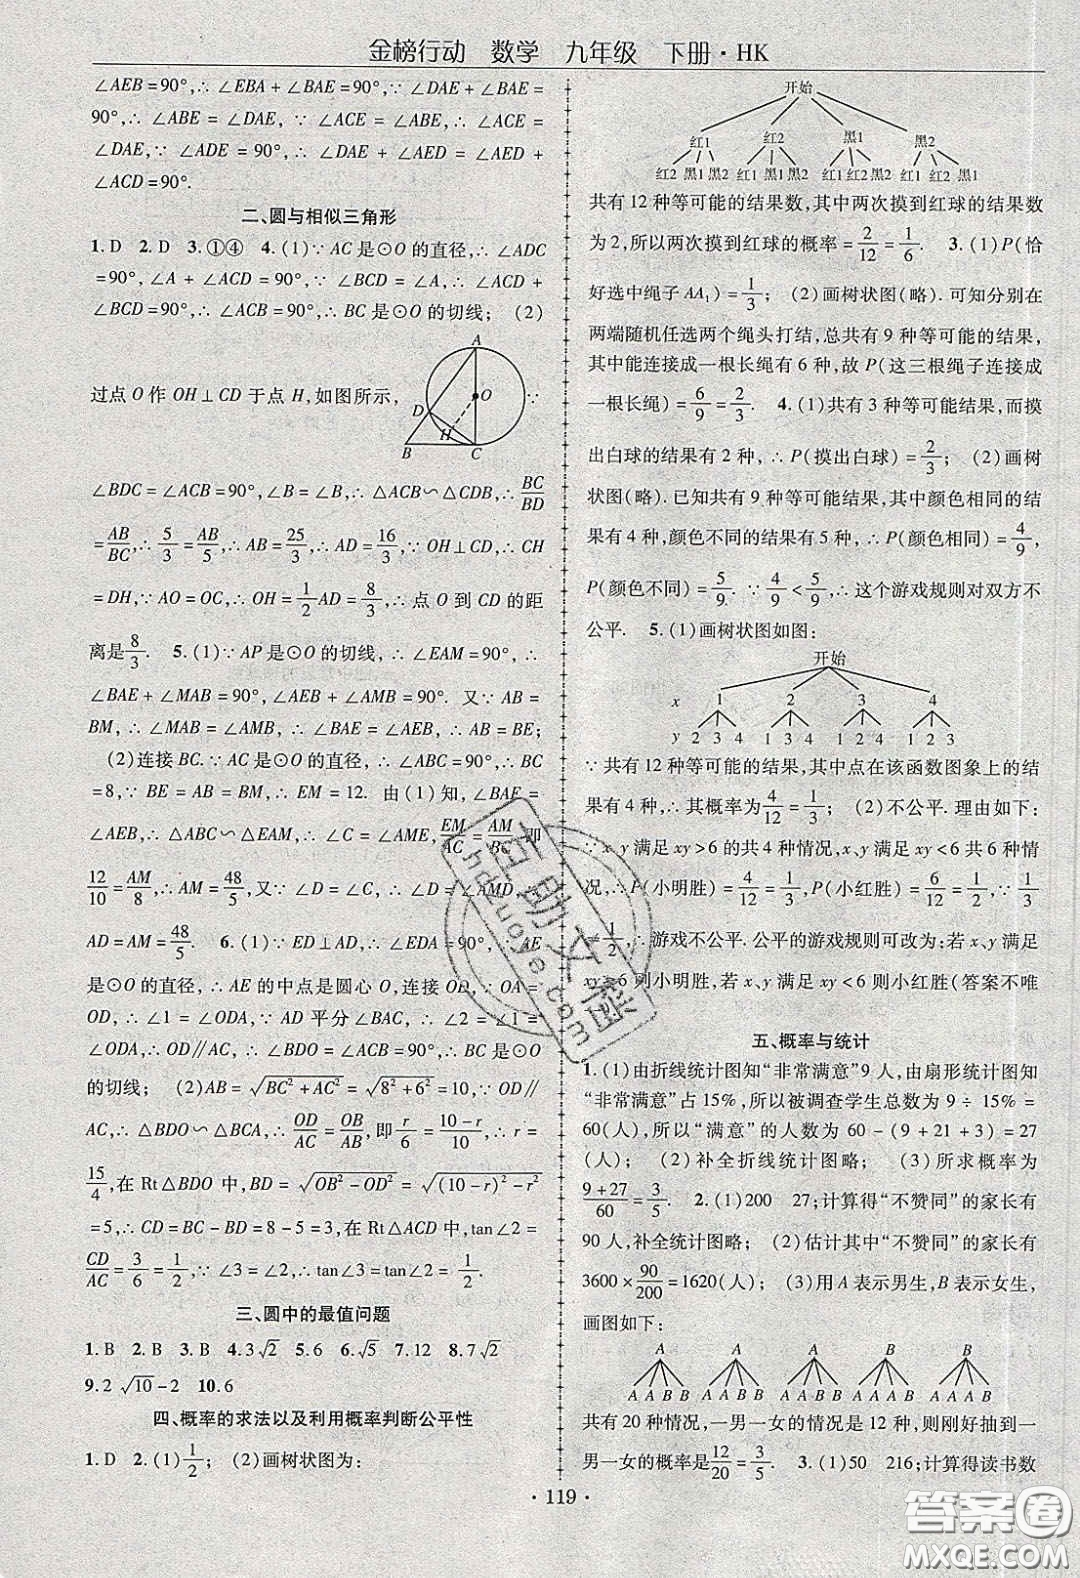 金榜行动 数学 九年级 下册·HK
∠AEB=90°,∴∠EBA+∠BAE=90°,∴∠DAE+∠BAE=
90°,∴∠ABE=∠DAE,∵∠ACE=∠ABE,∴∠ACE=
∠DAE,∵∠ADE=90°,∴∠DAE+∠AED=∠AED+
∠ACD=90°.
二、圆与相似三角形
1.D 2.D 3.①④ 4.(1)∵AC是⊙O的直径,∴∠ADC
=90°,∠A+∠ACD=90°.∵∠BCD=∠A,∴∠BCD+
∠ACD=90°,∴∠ACB=90°,∴BC是⊙O的切线; (2)
过点O作OH⊥CD于点H,如图所示, ∵
A
O
D
H
B C
∠BDC=∠ACB=90°,∠B=∠B,∴△ACB∽△CDB,∴BC/BD
=AB/BC,∴5/3=AB/5,∴AB=25/3,∴AD=16/3,∵OH⊥CD,∴CH
=DH,∵AO=OC,∴OH=1/2AD=8/3,∴点O到CD的距
离是8/3. 5.(1)∵AP是⊙O的切线,∴∠EAM=90°,∴
∠BAE+∠MAB=90°,∠AEB+∠AMB=90°. 又∵AB=
BM,∴∠MAB=∠AMB,∴∠BAE=∠AEB,∴AB=BE;
(2)连接BC.∵AC是⊙O的直径,∴∠ABC=90°,∵BC
=8,∵BE=AB=BM,∴EM=12. 由(1)知,∠BAE=
∠AEB,∴△ABC∽△EAM,∴∠C=∠AME,EM/AC=AM/BC,即
12/10=AM/8,∴AM=48/5,又∵∠D=∠C,∴∠D=∠AMD,∴
AD=AM=48/5. 6.(1)∵ED⊥AD,∴∠EDA=90°,∵AE
是⊙O的直径,∴AE的中点是圆心O,连接OD,∵OA=
OD,∴∠1=∠ODA,∵AD平分∠BAC,∴∠1=∠2=
∠ODA,∴OD∥AC,∴∠BDO=∠ACB=90°,∴BC是⊙O
的切线; (2)AB=√(BC²+AC²)=√(8²+6²)=10,∵OD∥
AC,∴△BDO∽△BCA,∴OD/AC=OB/AB,即r/6=(10-r)/10,∴r=
15/4,在Rt△BDO中,BD=√(OB²-OD²)=√((10-r)²-r²)
=5,∴CD=BC-BD=8-5=3,在Rt△ACD中,tan∠2=
CD/AC=3/6=1/2,∵∠3=∠2,∴tan∠3=tan∠2=1/2.
三、圆中的最值问题
1.B 2.B 3.B 4.3√2 5.6 6.√5 7.12 8.7√2
9.2√10-2 10.6
四、概率的求法以及利用概率判断公平性
1.D 2.(1)1/2; (2)画树状图为:
开始
红1 红2 黑1 黑2
红2 黑1 黑2 红1 黑1 黑2 红1 红2 黑2 红1 红2 黑1
共有12种等可能的结果数,其中两次摸到红球的结果数
为2,所以两次摸到红球的概率=2/12=1/6. 3.(1)P(恰
好选中绳子AA₁)=1/3; (2)画树状图(略). 可知分别在
两端随机任选两个绳头打结,总共有9种等可能的结果,
其中能连接成一根长绳有6种,故P(这三根绳子连接成
一根长绳)=6/9=2/3. 4.(1)共有3种等可能结果,而摸
出白球的结果有2种,∴P(摸出白球)=2/3; (2)画树
状图(略).已知共有9种等可能结果,其中颜色相同的结
果有4种,颜色不同的结果有5种,∴P(颜色相同)=4/9,
P(颜色不同)=5/9. ∵4/9<5/9,∴这个游戏规则对双方不
公平. 5.(1)画树状图如图:
开始
x 1 2 3 4
y 2 3 4 1 3 4 1 2 4 1 2 3
∵共有12种等可能的结果,其中点在该函数图象上的结
果有4种,∴其概率为4/12=1/3; (2)不公平. 理由如下:
∵x、y满足xy>6的共4种情况,x、y满足xy<6共6种情
况,∴P(小明胜)=4/12=1/3,P(小红胜)=6/12=1/2,∵1/3
≠1/2,∴游戏不公平.公平的游戏规则可改为;若x、y满足
xy>6则小明胜,若x、y满足xy<6则小红胜(答案不唯
五、概率与统计
1.(1)由折线统计图知“非常满意”9人,由扇形统计图知
“非常满意”占15%,所以被调查学生总数为9÷15%=
60(人),所以“满意”的人数为60-(9+21+3)=27
(人); (2)补全折线统计图略; (3)所求概率为
(9+27)/60=3/5. 2.(1)200 27;计算得“不赞同”的家长有
90人,补全统计图略; (2)估计其中“不赞同”的家长有
3600×90/200=1620(人); (3)用A表示男生,B表示女生,
画图如下:
A A A B B
A A B B A A B B A A B B A A A B A A A B
共有20种情况,一男一女的情况是12种,则刚好抽到一
男一女的概率是12/20=3/5. 3.(1)50 216;计算得读书数
·119·
作业帮文库
答案圈
MXQE.COM